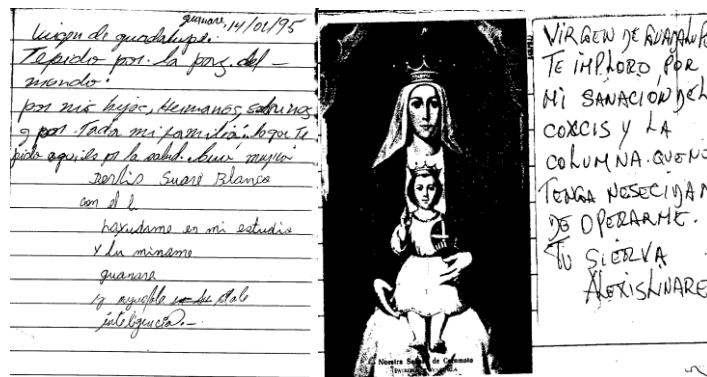 guanare, 14/01/95
Virgen de guadalupe.
Te pido por la paz del
mundo.
por mis hijos, Hermanos, sobrinos
y por Toda mi familia. lo que Te
pido aqui, es por la salud.
Suare Blanco
con el
haxudame en mi estudio
y lu miname
guanare
inteligencia.
Nuestra Señora de Coromoto
VIRGEN DE GUADALUPE
TE IMPLORO POR
MI SANACION DEL
COXCIS Y LA
COLUMNA. QUE NO
TENGA NESECIDAD
DE OPERARME.
TU SIERVA
ALEXIS LINARE